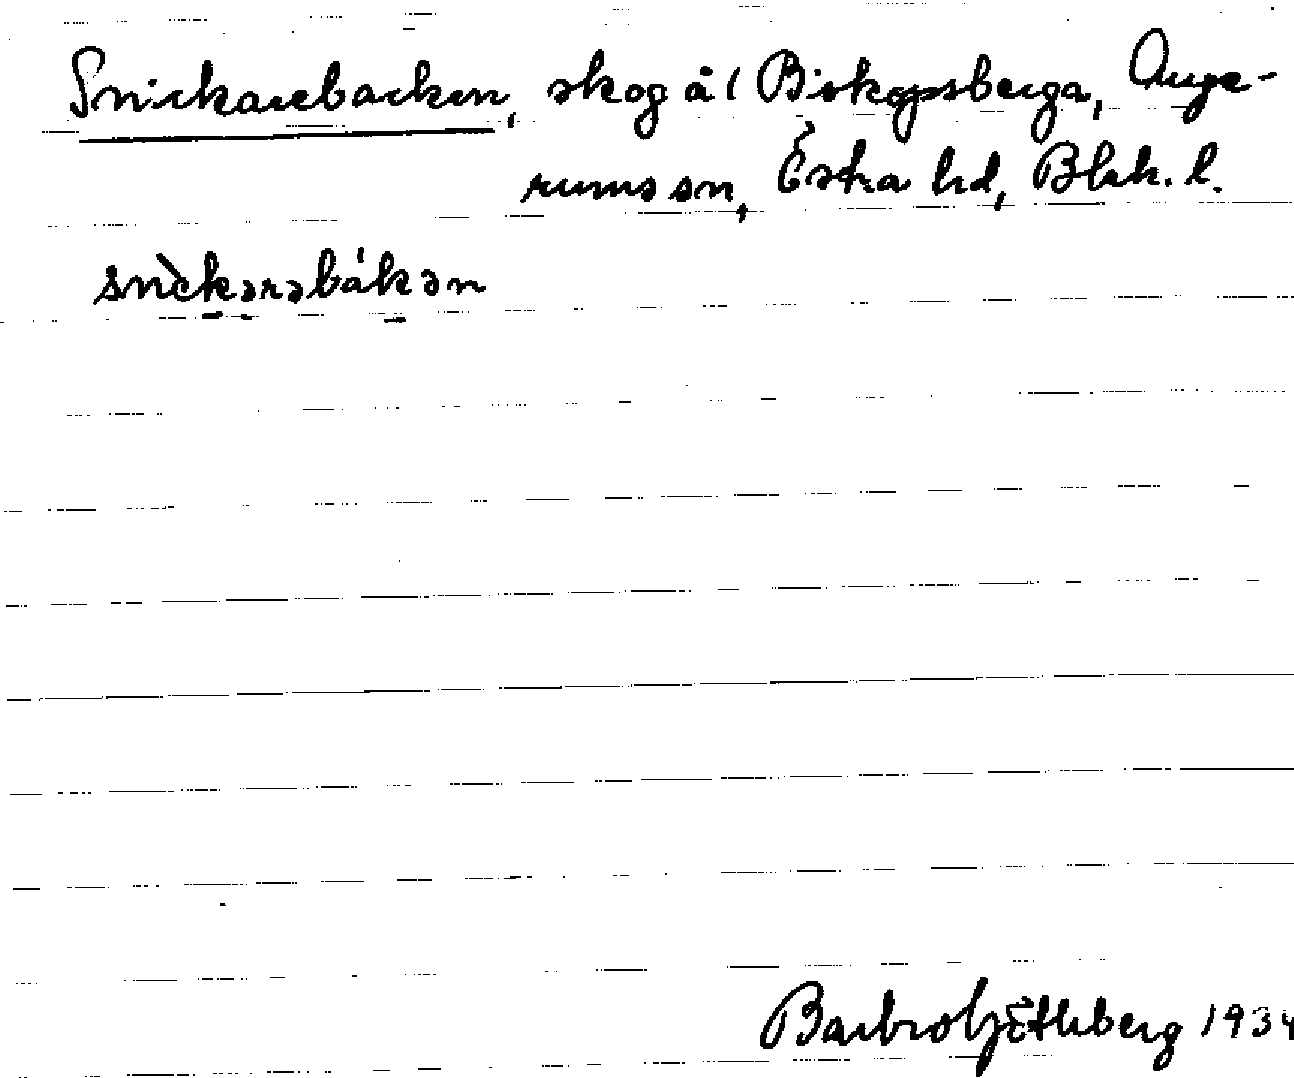 Snickarebacken, skog å 1 Biskopsberga, Auge-
rums sn, Östra hd, Blek. l.
snìckərəbákən
Barbro Götlberg 1934